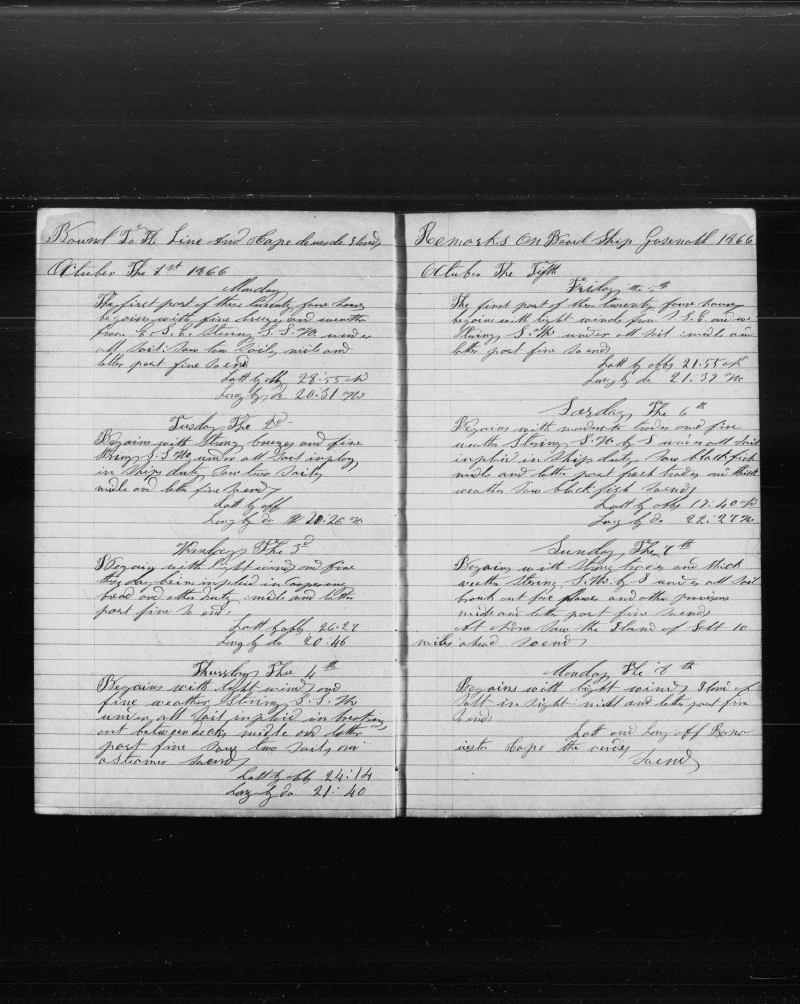 Bound To The Line And Cape de verde Ilands
October The 1st 1866
Monday
The first part of these twenty four hours
begains with fine breezes and weather
from E. S. E. Stering S. S. W. under
all sail: Saw two Sails midle and
latter part fine So ends
Latt by obs 28:55 N
Long by do 20:31 W
Tusday The 2d
Begains with Strong breezes and fine
String S. S. W. under all sail imploy
in Ships duty Saw two Sails
midle and latter fine So ends
Latt by obs
Long by do 20:26 W
Wensday The 3d
Begain with light winds and fine
this day bein inploid in
bread and other duty: midle and latter
part fine So ends
Latt by obs 26:27
Long by do 20:46
Thursday The 4th
Begains with light winds and
fine weather Stering S. S. W.
under all Sail inploid in breaking
out between decks midle and latter
part fine Saw two Sails and
a Steamer So ends
Latt by obs 24:14
Long by do 21:40
Remarks On Board Ship Gosnold 1866
October The Fifth
Friday the 5th
The first part of this twenty four hours
begains with light winds from S. S. E and
String S. W. under all sail: midle and
latter part fine So ends
Latt by obs 21:55 N
Long by do 21:37 W
Sarday The 6th
Begains with moderte trades and fine
weather Stering S. W. by S under all Sail
inploid in Ships duty Saw blackfish
midle and latter part fresh trades and thick
weather Saw black fish So ends
Latt by obs 19:40 N
Long by do 22:27 W
Sunday The 7th
Begains with strong trades and thick
weather String S. W. by S under all Sail
broak out five flower and other provisons
midle and latter part fine So ends
At saw the Iland of Salt 10
miles ahead So ends
Monday The 8th
Begains with light winds Iland of
Salt in Sight: midle and latter part fine
So ends
Latt and Long off Bono
vester Cape the verdes
So ends